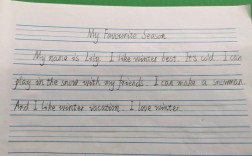 My Favourite Season
My name is Lily. I like winter best. It's cold. I can
play in the snow with my friends. I can make a snowman.
And I like winter vacation. I love winter.